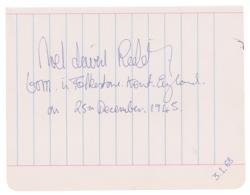 Noel David Redding
born. in Folkestone. Kent. England.
on 25th December. 1945.
3.1.68